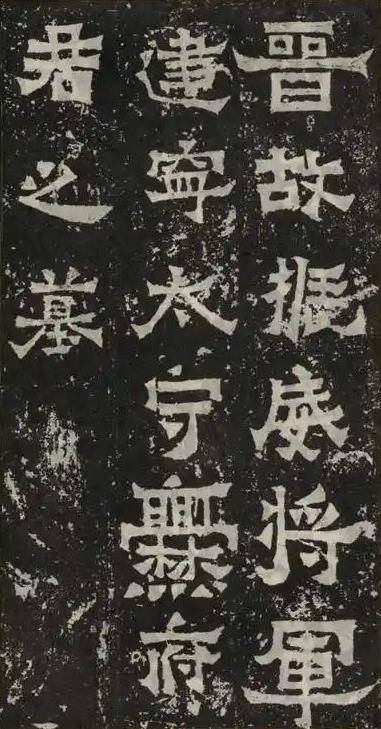 晋故振威将軍
建寧太守爨府
君之墓